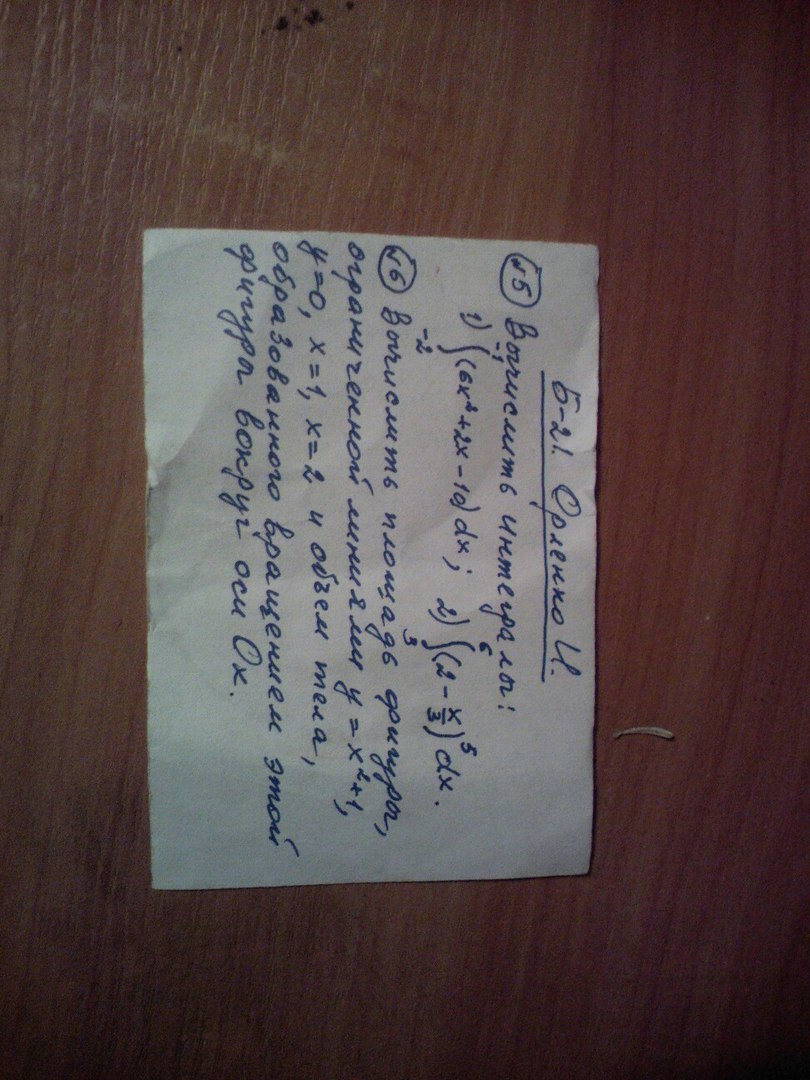 Б-21. Орленко И.
15 Вычислить интегралы:
1) ∫₋₂⁻¹(6x²+2x-10)dx; 2) ∫₃⁶(2-x/3)⁵dx.
16 Вычислить площадь фигуры,
ограниченной линиями y=x²+1,
y=0, x=1, x=2 и объем тела,
образованного вращением этой
фигуры вокруг оси Ox.